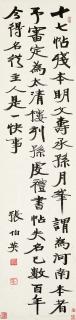 十七帖殘本明文壽承孫月峯謂為河南本者
予審定為太清樓刻孫虔禮書帖失名已數百年
今得名從主人是一快事
張伯英